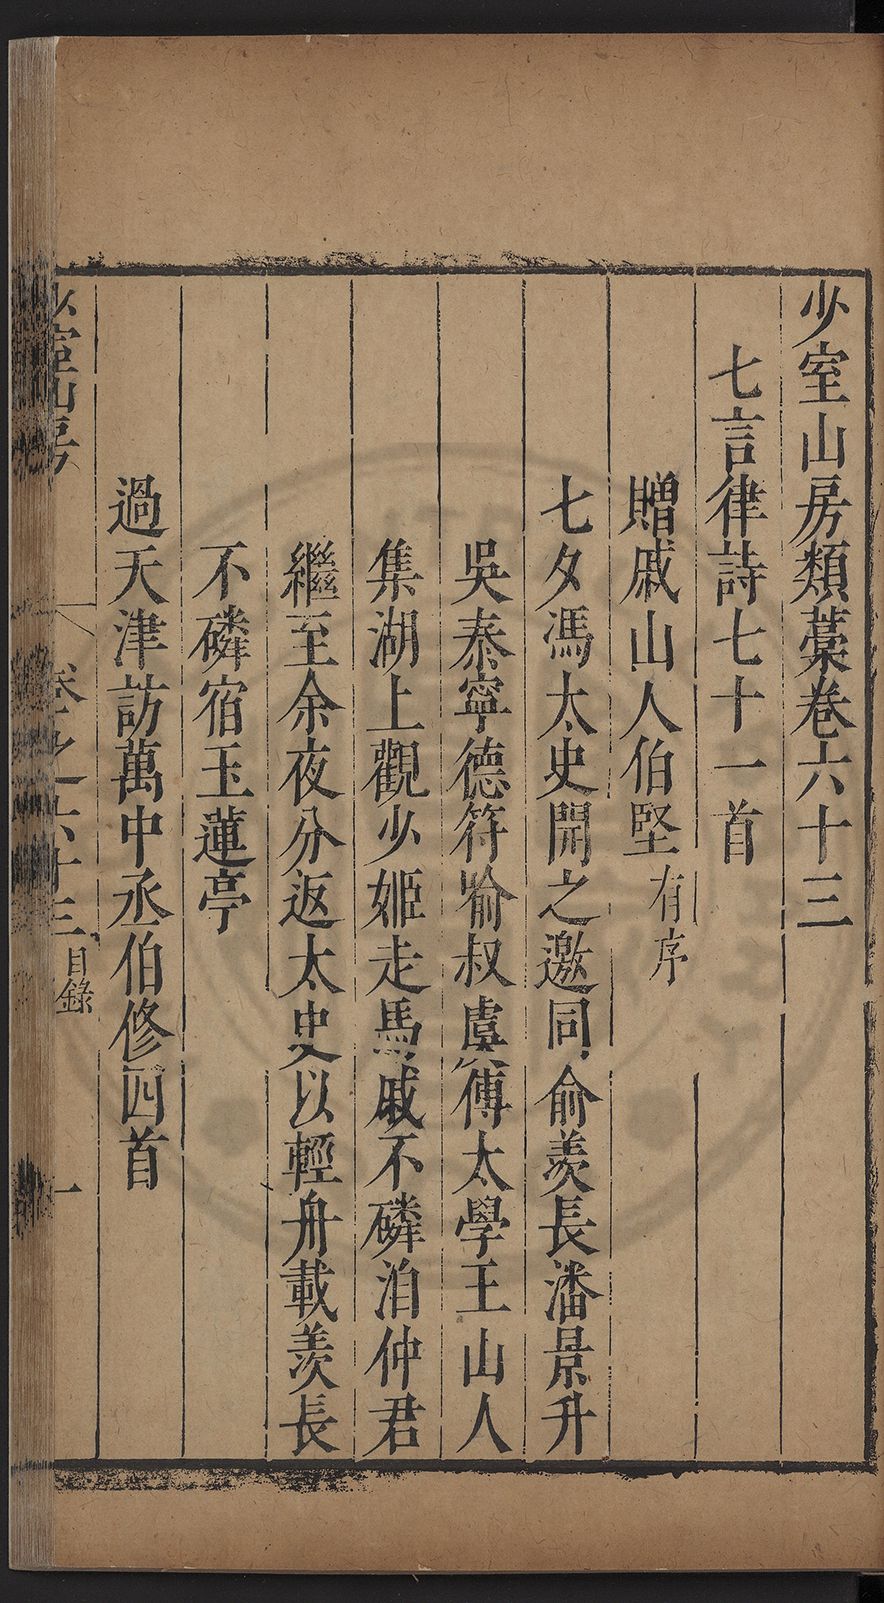 少室山房類藁卷六十三
七言律詩七十一首
贈戚山人伯堅有序
七夕馮太史開之邀同俞羨長潘景升
吳泰寧德符喻叔虞傅太學王山人
集湖上觀少姬走馬戚不磷洎仲君
繼至余夜分返太史以輕舟載羨長
不磷宿玉蓮亭
過天津訪萬中丞伯修四首
少室山房
卷之六十三 目錄 一